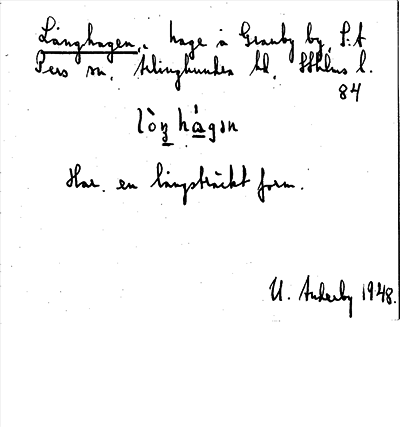 Långhagen, hage å Granby by, S:t
Pers sn, Ärlinghundra hd, Sthlms l.
84
lòŋ hàgən
Har en långsträckt form.
U. Anderby 1948.